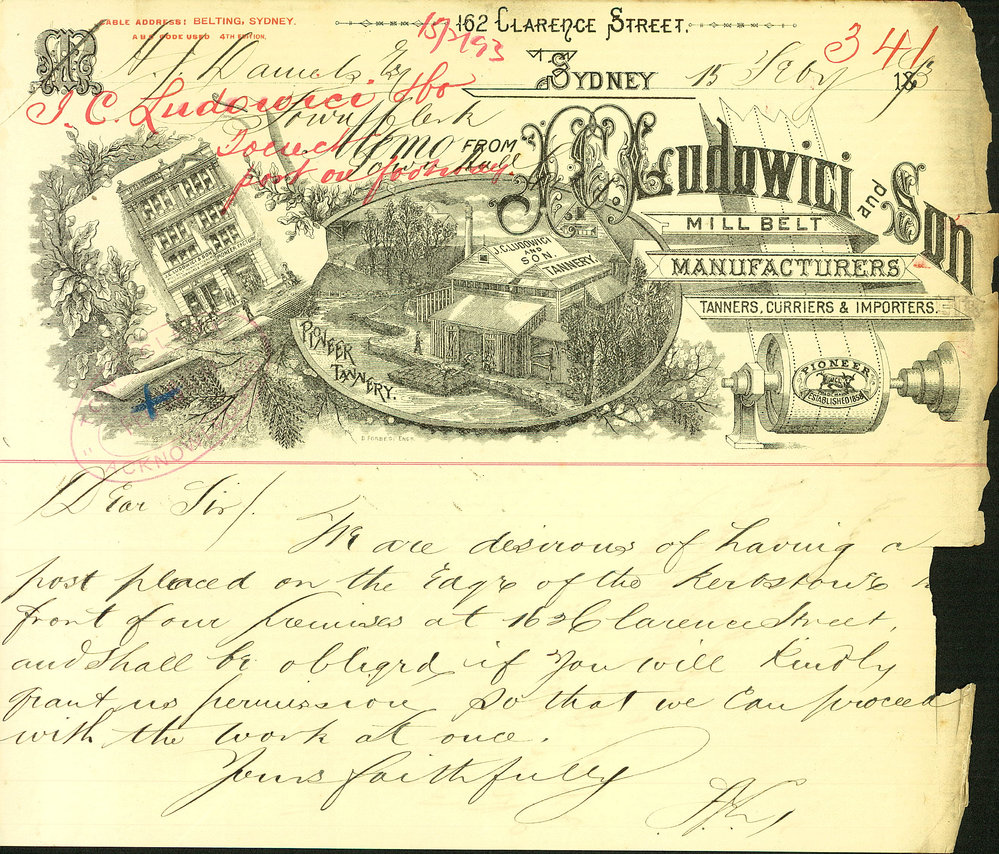 CABLE ADDRESS: BELTING, SYDNEY.
A B C CODE USED 4TH EDITION.
162 CLARENCE STREET.
15/2/93
341
SYDNEY 15 Feby 1893
H. J. Daniels Esq
J. C. Ludowici &co
Town Clerk
To erect
post on footway.
Town Hall
Memo FROM
J.C. Ludowici and Son
MILL BELT
MANUFACTURERS
TANNERS, CURRIERS & IMPORTERS.
J.C. LUDOWICI
AND
SON.
TANNERY.
PIONEER
TANNERY.
PIONEER
ESTABLISHED 1858
D. FORBES, ENGR.
ACKNOW
Dear Sir/.
We are desirous of having a
post placed on the Edge of the Kerbstone
front of our premises at 162 Clarence Street,
and shall be obliged if you will Kindly
grant us permission so that we can proceed
with the work at once.
Yours faithfully